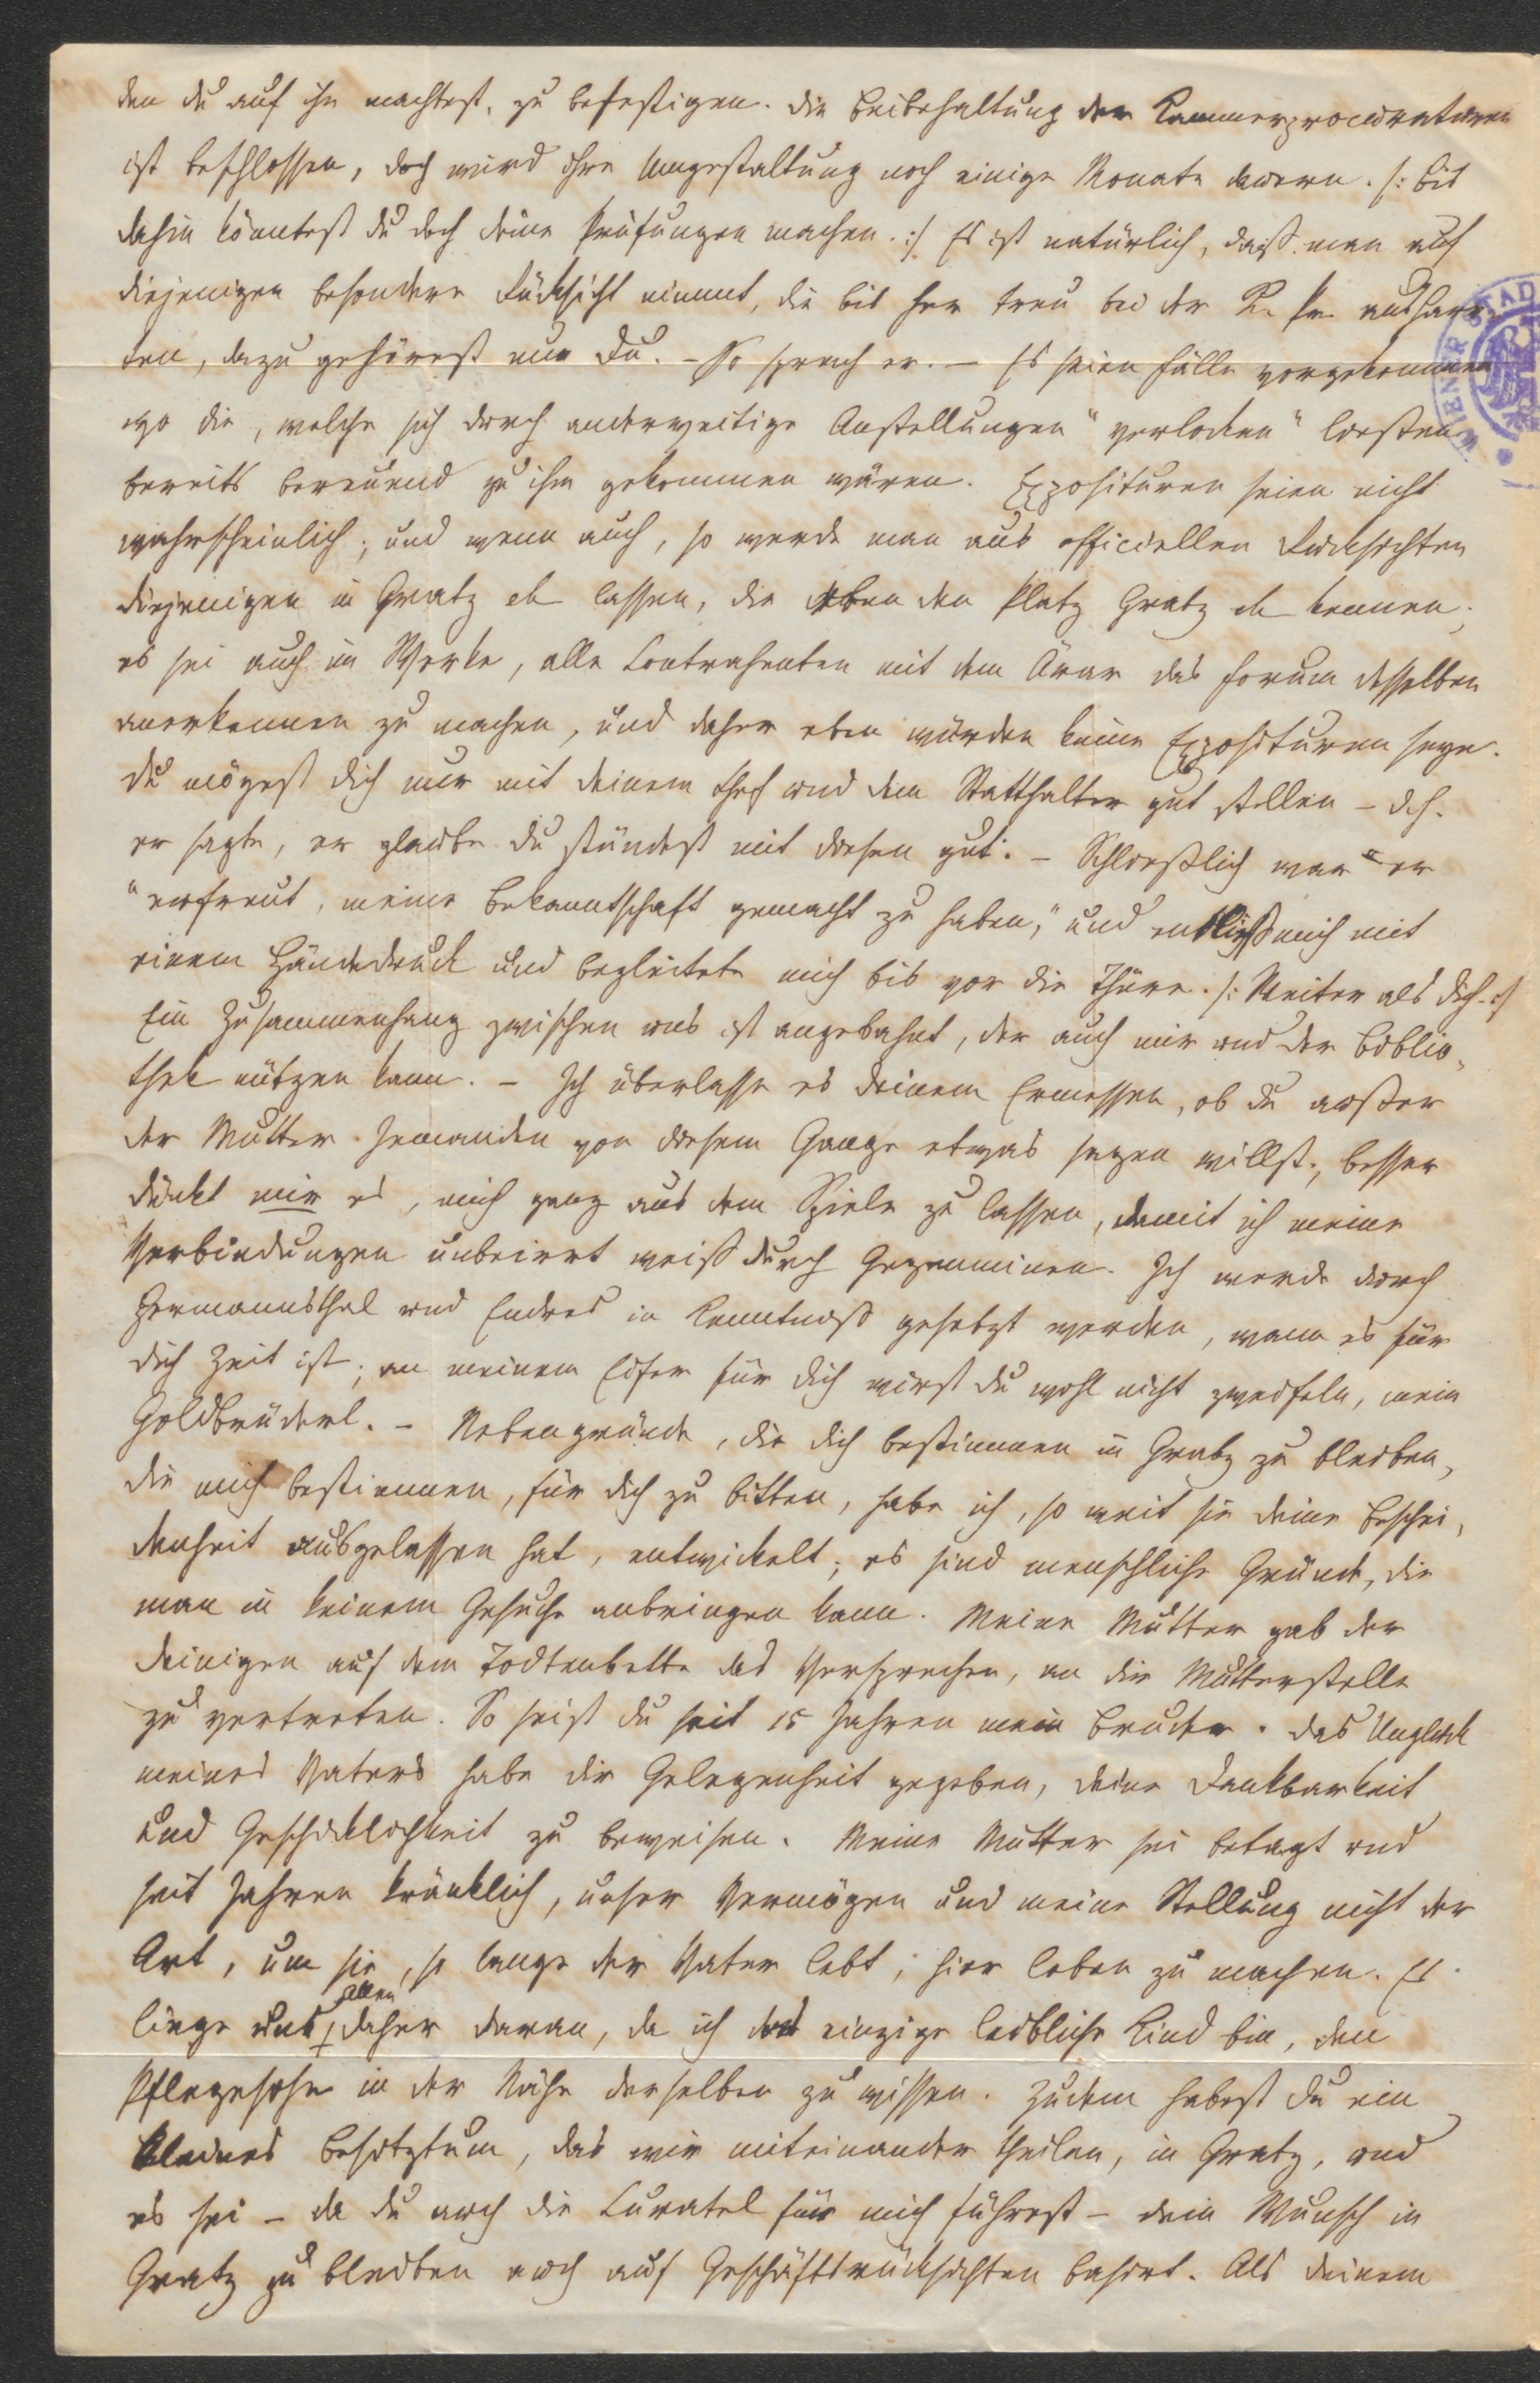 den du auf ihn machtest, zu befestigen. Die Beibehaltung der Kammerprocuraturen
ist beschlossen, doch wird ihre Umgestaltung noch einige Monate dauern. /: bis
dahin könntest du doch deine Prüfungen machen. :/ Es ist natürlich, daß man auf
diejenigen besondere Rücksicht nimmt, die bis her treu bei der K. Pr. ausharr¬
ten, dazu gehörest nun Du. – So sprach er. – Es seien Fälle vorgekommen
wo die, welche sich durch anderweitige Anstellungen "verlocken" ließen
bereits bereuend zu ihm gekommen wären. Exposituren seien nicht
wahrscheinlich; und wenn auch, so werde man aus officiellen Rücksichten
diejenigen in Gratz lassen, die eben den Platz Gratz kennen;
es sei auch im Werke, alle Contrahenten mit dem Ärar das Forum desselben
anerkennen zu machen, und daher eben würden keine Exposituren seyn.
Du mögest dich nur mit deinem Chef und dem Statthalter gut stellen – d.h.
er sagte, er glaube du stündest mit diesen gut. – Schließlich war er
"erfreut, meine Bekanntschaft gemacht zu haben," und entließ mich mit
einem Händedruck und begleitete mich bis vor die Thüre. /: Weiter als dich. :/
Ein Zusammenhang zwischen uns ist angebahnt, der auch mir und der Biblio¬
thek nützen kann. – Ich überlasse es deinem Ermessen, ob du außer
der Mutter Jemanden von diesem Gange etwas sagen willst; besser
dünkt mir es, mich ganz aus dem Spiele zu lassen, damit ich meine
Verbindungen unbeirrt weiß durch Gegenminen. Ich werde durch
Hermannsthal und Endres in Kenntniß gesetzt werden, wann es für
dich Zeit ist; an meinem Eifer für dich wirst du wohl nicht zweifeln, mein
Goldbrüderl. – Nebengründe, die dich bestimmen in Gratz zu bleiben,
die mich bestimmen, für dich zu bitten, habe ich, so weit sie deine Beschei¬
denheit ausgelassen hat, entwickelt; es sind menschliche Gründe, die
man in keinem Gesuche anbringen kann. Meine Mutter gab der
deinigen auf dem Todtenbette das Versprechen, an dir Mutterstelle
zu vertreten. So seist du seit 15 Jahren mein Bruder. Das Unglück
meines Vaters habe dir Gelegenheit gegeben, deine Dankbarkeit
und Geschicklichkeit zu beweisen. Meine Mutter sei betagt und
seit Jahren kränklich, unser Vermögen und meine Stellung nicht der
Art, um sie, so lange der Vater lebt, hier leben zu machen. Es
liege uns allen daher daran, da ich das einzige leibliche Kind bin, den
Pflegesohn in der Nähe derselben zu wissen. Zudem habest du ein
kleines Besitztum, das wir miteinander theilen, in Gratz, und
es sei – da du auch die Curatel für mich führest – dein Wunsch in
Gratz zu bleiben auch auf Geschäftsrücksichten basirt. Als deinem